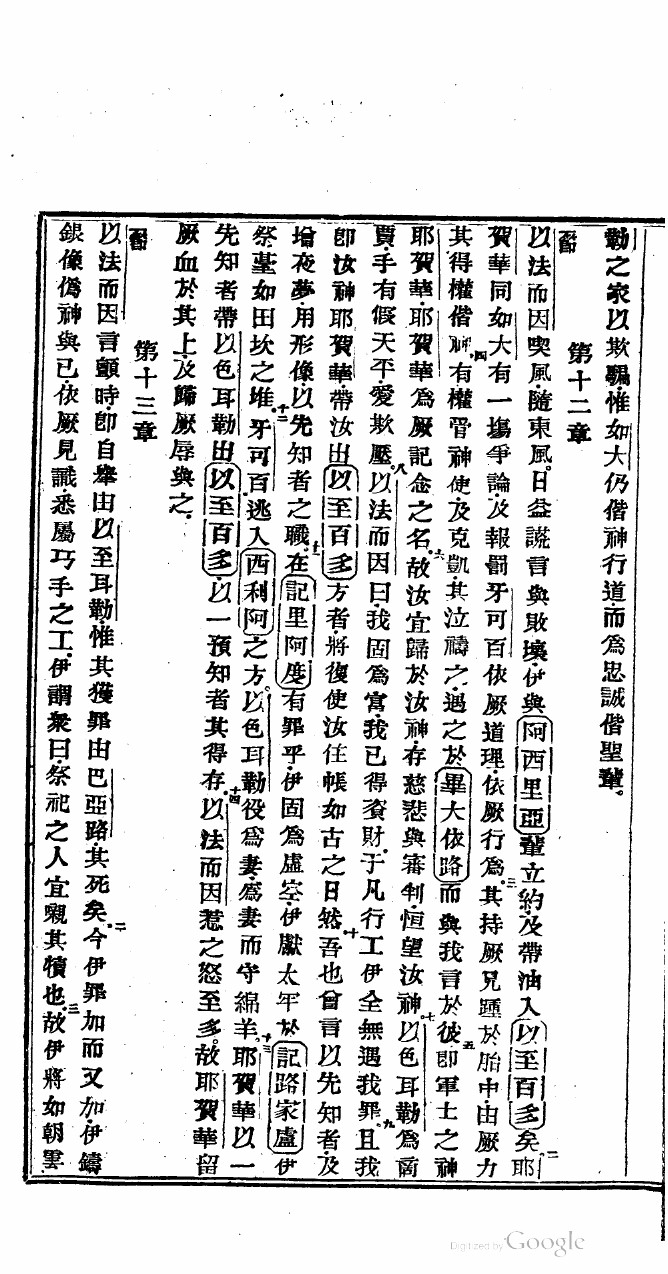 勒之家以欺騙惟如大仍偕神行道而爲忠誠偕聖輩
第十二章
以法而因喫風隨東風日益謊言與敗壞伊與阿西里亞輩立約及帶油入以至百多矣二耶
賀華同如大有一塲爭論及報罰牙可百依厥道理依厥行爲三其持厥兄踵於胎中由厥力
其得權偕神四有權晉神使及克凱其泣禱之遇之於畢大依路而與我言於彼五卽軍士之神
耶賀華耶賀華爲厥記念之名六故汝宜歸於汝神存慈悲與審判恒望汝神七以色耳勒爲商
賈手有假天平愛欺壓八以法而因曰我固爲富我已得資財于凡行工伊全無遇我罪九且我
卽汝神耶賀華帶汝出以至百多方者將復使汝住帳如古之日然十吾也曾言以先知者及
增夜夢用形像以先知者之職十一在記里阿度有罪乎伊固爲虛空伊獻太牢於記路家盧伊
祭墓如田坎之堆十二牙可百逃入西利阿之方以色耳勒役爲妻爲妻而守綿羊十三耶賀華以一
先知者帶以色耳勒出以至百多以一預知者其得存十四以法而因惹之怒至多故耶賀華留
厥血於其上及歸厥辱與之
第十三章
以法而因言顫時卽自舉由以至耳勒惟其獲罪由巴亞路其死矣二今伊罪加而又加伊鑄
銀像僞神與已依厥見識悉屬巧手之工伊謂衆曰祭祀之人宜嚫其犢也三故伊將如朝雲
Digitized by Google